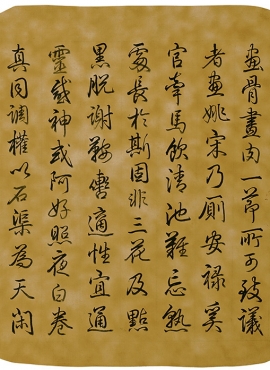 畫骨畫肉一節所可致議
者畫姚宋乃厠安祿奚
官牽馬飲清池難忘熟
處長於斯固非三花及點
黑脫謝鞍轡適性宜通
靈或神或阿好照夜白卷
真同調權以石渠為天閑